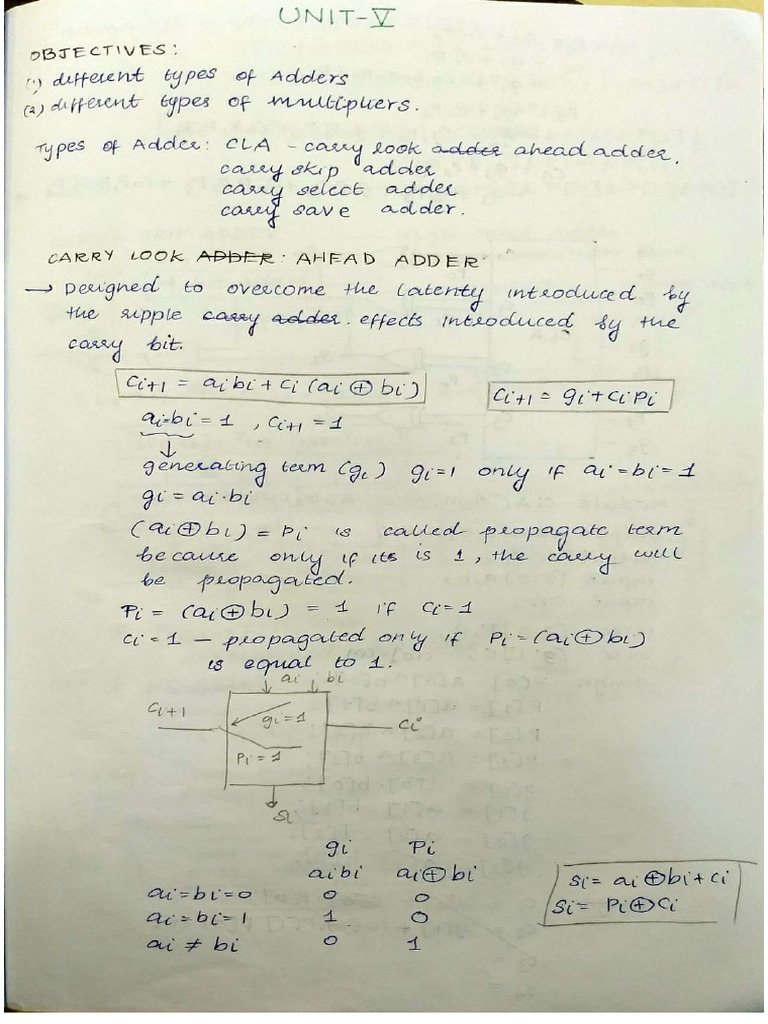 UNIT-V
OBJECTIVES:
(1) different types of Adders
(2) different types of multipliers.
Types of Adder: CLA - carry look adder ahead adder.
carry skip adder
carry select adder
carry save adder.
CARRY LOOK ADDER: AHEAD ADDER
→ Designed to overcome the latenty introduced by
the ripple carry adder. effects introduced by the
carry bit.
Ci+1 = aibi + Ci (ai ⊕ bi)
Ci+1 = gi + Ci Pi
ai=bi = 1 , Ci+1 = 1
generating term (gi) gi=1 only if ai = bi = 1
gi = ai·bi
(ai ⊕ bi) = Pi is called propagate term
because only if its is 1, the carry will
be propagated.
Pi = (ai ⊕ bi) = 1 if Ci = 1
Ci = 1 - propagated only if Pi = (ai ⊕ bi)
is equal to 1.
ai bi
Ci+1
gi = 1
Ci
Pi = 1
Si
gi Pi
aibi ai ⊕ bi
ai = bi = 0 0 0
ai = bi = 1 1 0
ai ≠ bi 0 1
Si = ai ⊕ bi + Ci
Si = Pi ⊕ Ci